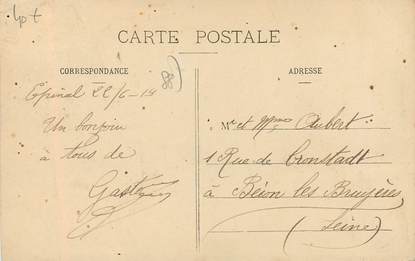 CARTE POSTALE
CORRESPONDANCE
ADRESSE
88
Epinal 22/6-19
Un bonjour
à tous de
Gaston
Mr et Mme Aubert
1 Rue de Cronstadt
à Bécon les Bruyères
(Seine)